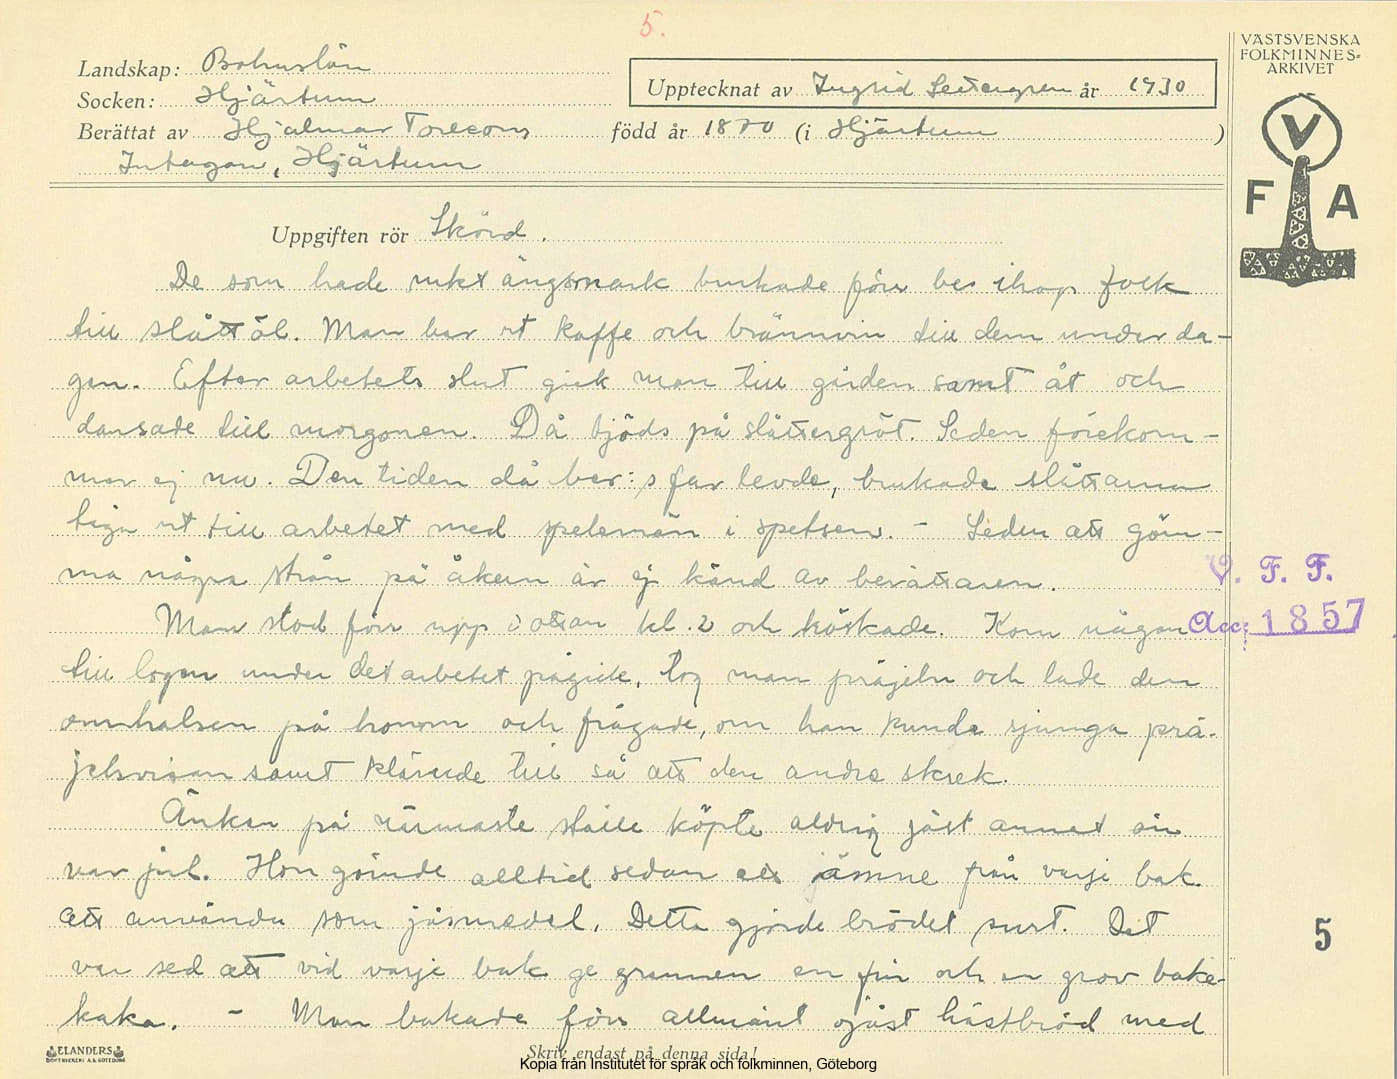 5.
VÄSTSVENSKA
FOLKMINNES-
ARKIVET
Landskap: Bohuslän
Socken: Hjärtum
Upptecknat av Ingrid Settergren år 1930
Berättat av Hjalmar född år 1870 (i Hjärtum )
Intagan, Hjärtum
V
F A
Uppgiften rör Skörd.
De som hade mkt ängsmark brukade förr be ihop folk
till slåtteröl. Man bar ut kaffe och brännvin till dem under da-
gen. Efter arbetets slut gick man till gården samt åt och
dansade till morgonen. Då bjöds på slåttergröt. Seden förekom-
mer ej nu. Den tiden då ber:s far levde, brukade slåttarna
tåga ut till arbetet med spelemän i spetsen. - Seden att göm-
ma några strån på åkern är ej känd av berättaren.
V. F. F.
Man stod förr upp i ottan kl. 2 och tröskade. Kom någon
Acc: 1857
till logen under det arbetet pågick, tog man präjeln och lade den
om halsen på honom och frågade, om han kunde sjunga prä-
jelvisan samt klämde till så att den andre skrek.
Änkan på närmaste ställe köpte aldrig jäst annat än
var jul. Hon gömde alltid sedan ett jämne från varje bak
att använda som jäsmedel. Detta gjorde brödet surt. Det
var sed att vid varje bak ge grannen en fin och en grov bake-
kaka. - Man bakade förr allmänt ojäst hastbröd med
5
ELANDERS
BOKTRYCKERI A.B. GÖTEBORG
Skriv endast på denna sida!
Kopia från Institutet för språk och folkminnen, Göteborg